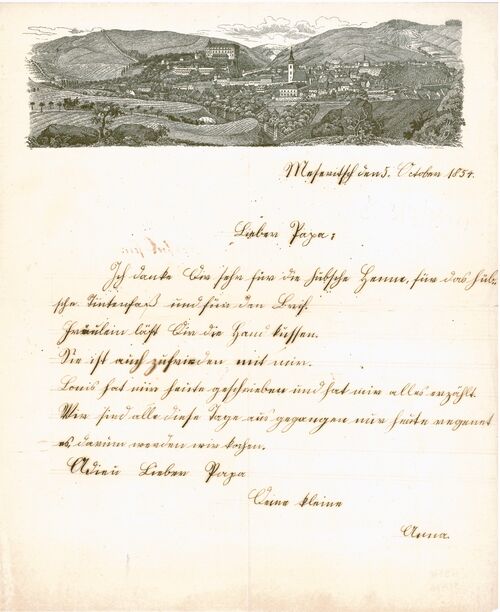 Meseritsch den 5. October 1854.
Lieber Papa!
Ich danke Dir sehr für die hübsche Henne, für das hüb-
sche Tintenfaß und für den Brief.
Fräulein läßt Dir die Hand küssen.
Sie ist auch zufrieden mit mir.
Louis hat mir heute geschrieben und hat mir alles erzählt.
Wir sind alle diese Tage aus gegangen nur heute regenet
es, darum werden wir kochen.
Adieu Lieber Papa
Deine kleine
Anna.